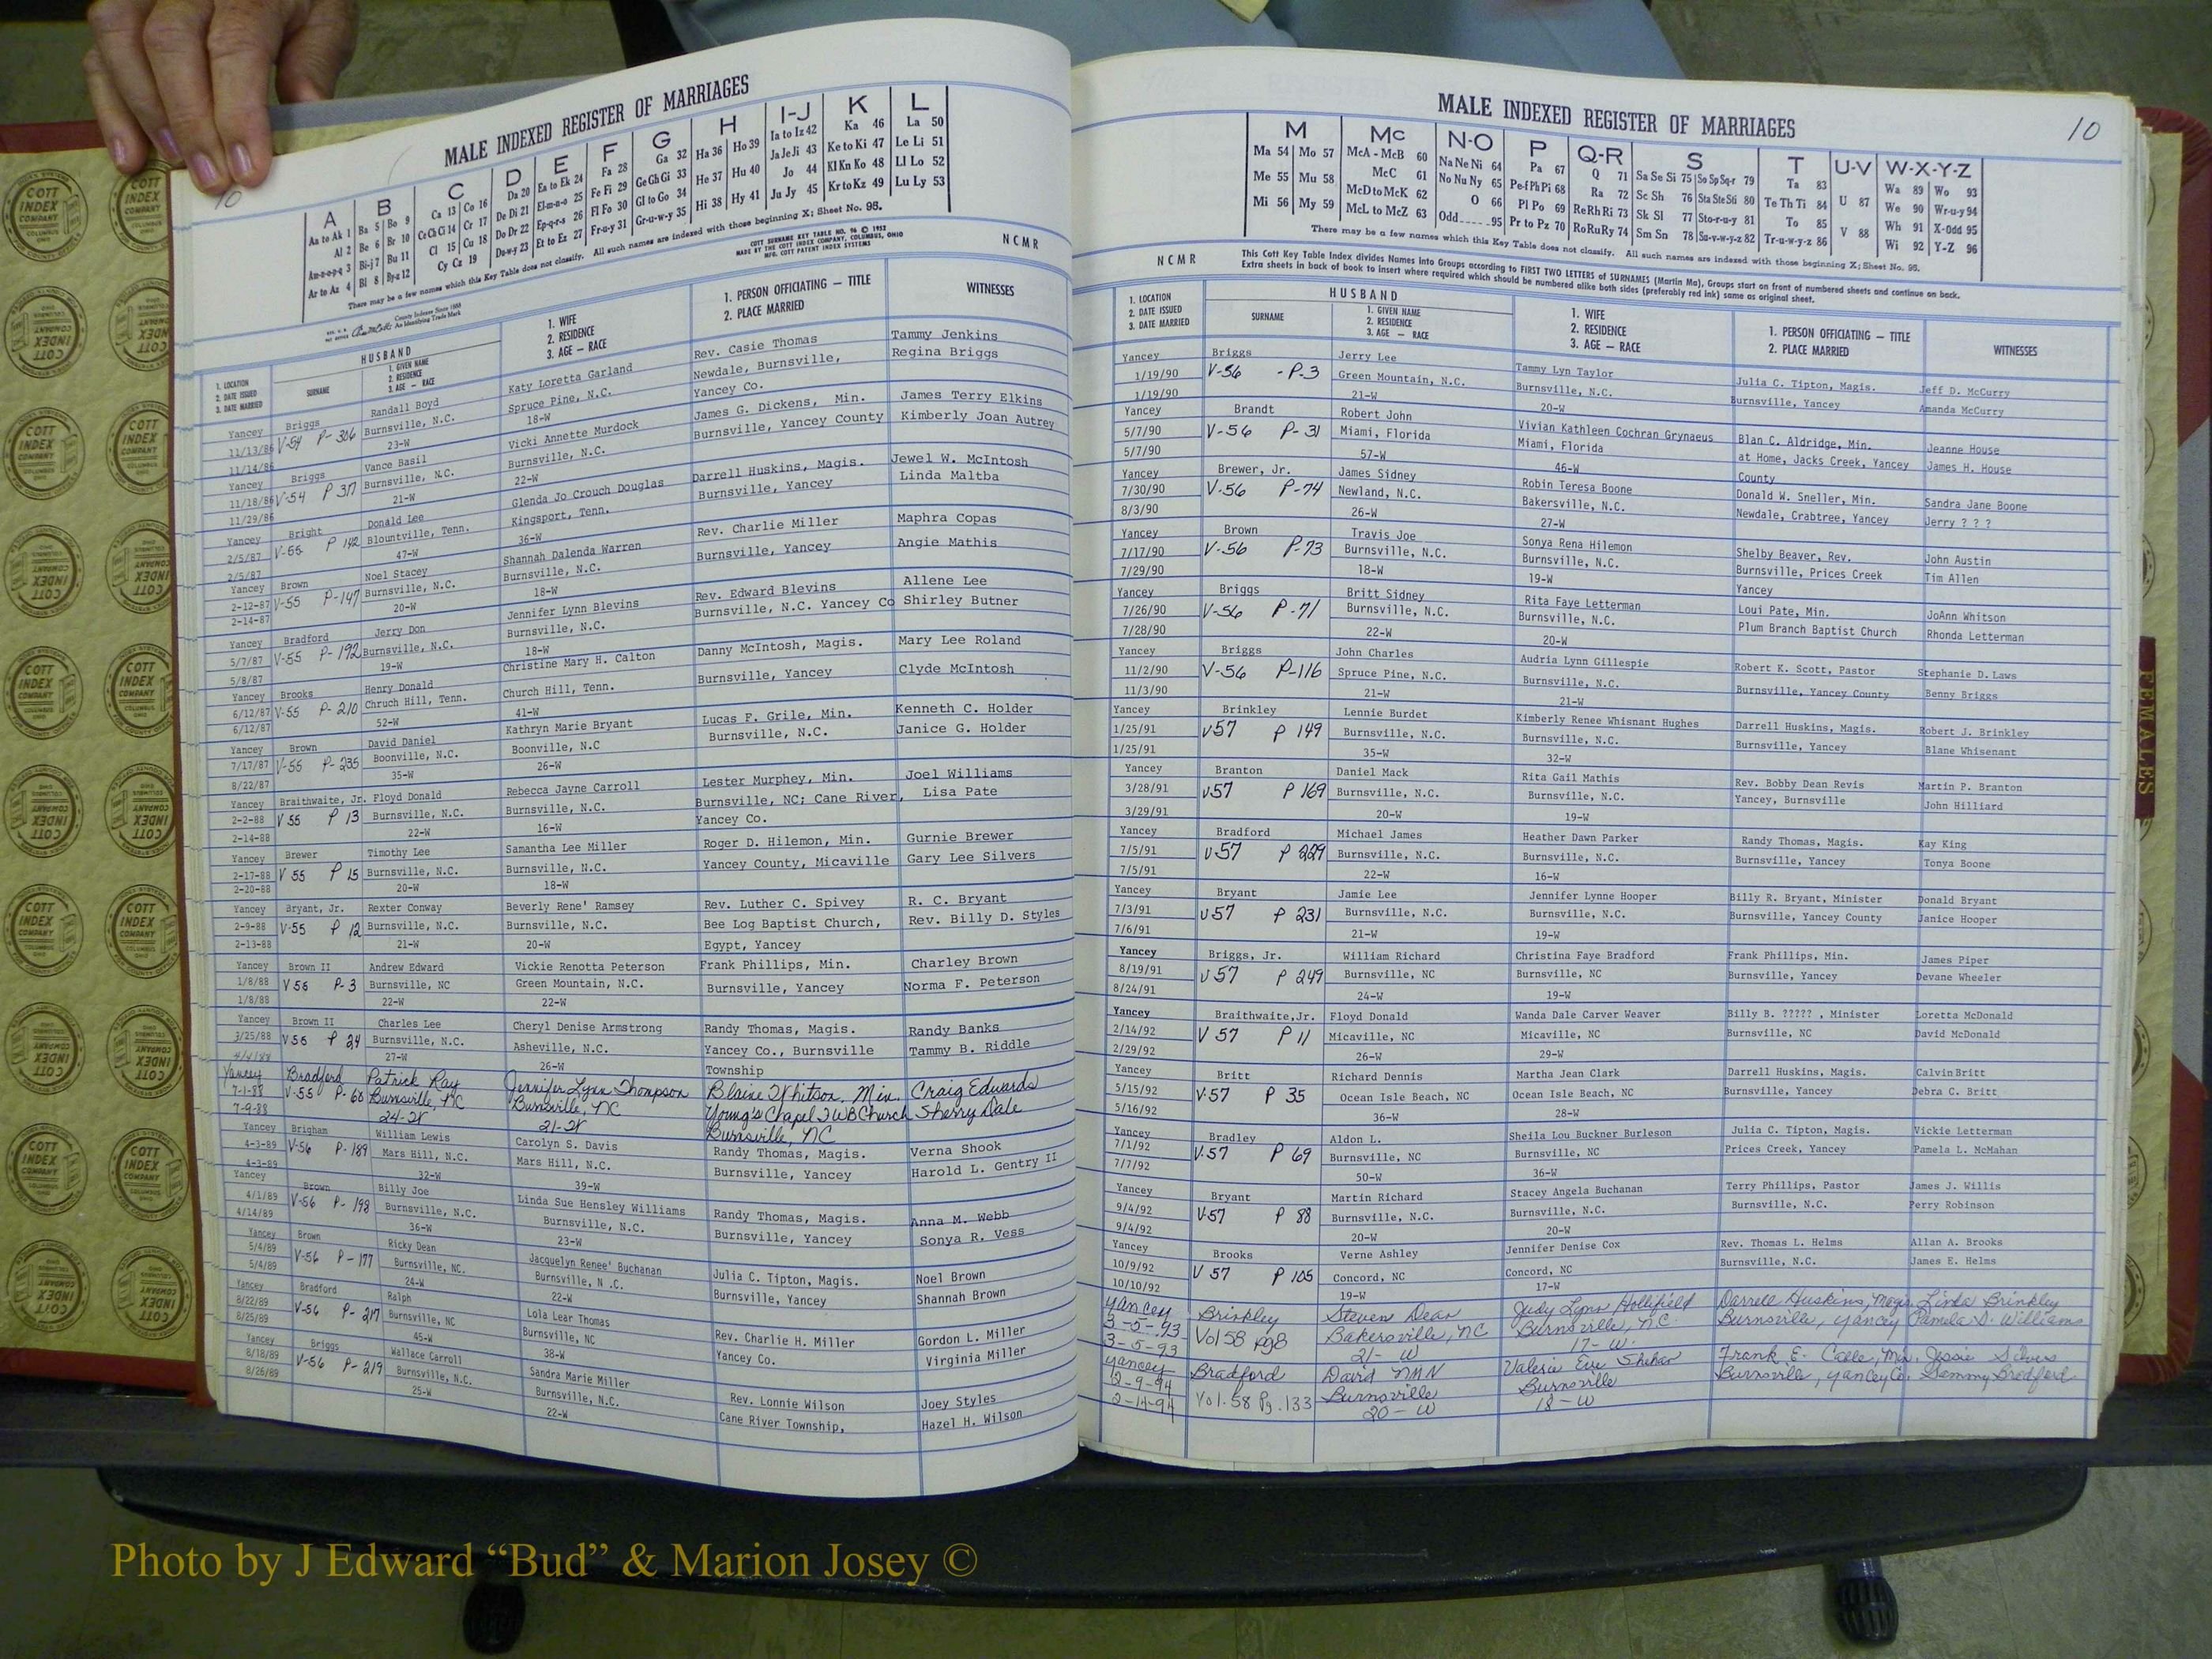 10
MALE INDEXED REGISTER OF MARRIAGES
A B C D E F G H I-J K L
Aa to Ak 1 Ba 5 Bo 9 Ca 13 Co 16 Da 20 Ea to Ek 24 Fa 28 Ga 32 Ha 36 Ho 39 Ia to Iz 42 Ka 46 La 50
Al 2 Be 6 Br 10 Ce Ch Ci 14 Cr 17 De Di 21 El-m-n-o 25 Fe Fi 29 Ge Gh Gi 33 He 37 Hu 40 Ja Je Ji 43 Ke to Ki 47 Le Li 51
Am-n-o-p-q 3 Bi-j 7 Bu 11 Cl 15 Cu 18 Do Dr 22 Ep-q-r-s 26 Fl Fo 30 Gl to Go 34 Hi 38 Hy 41 Jo 44 Kl Kn Ko 48 Ll Lo 52
Ar to Az 4 Bl 8 By-z 12 Cy Cz 19 Du-w-y 23 Et to Ez 27 Fr-u-y 31 Gr-u-w-y 35 Ju Jy 45 Kr to Kz 49 Lu Ly 53
There may be a few names which this Key Table does not classify. All such names are indexed with those beginning X; Sheet No. 96.
COTT SURNAME KEY TABLE NO. 96 © 1952
MADE BY THE COTT INDEX COMPANY, COLUMBUS, OHIO
MFG. COTT PATENT INDEX SYSTEMS
N C M R
County Indexes Since 1888
An Identifying Trade Mark
1. LOCATION 2. DATE ISSUED 3. DATE MARRIED
HUSBAND
SURNAME
1. GIVEN NAME 2. RESIDENCE 3. AGE — RACE
1. WIFE 2. RESIDENCE 3. AGE — RACE
1. PERSON OFFICIATING — TITLE 2. PLACE MARRIED
WITNESSES
Yancey Briggs Randall Boyd Katy Loretta Garland Rev. Casie Thomas Tammy Jenkins
11/13/86 V-54 P-306 Burnsville, N.C. Spruce Pine, N.C. Newdale, Burnsville, Regina Briggs
11/14/86 23-W 18-W Yancey Co.
Yancey Briggs Vance Basil Vicki Annette Murdock James G. Dickens, Min. James Terry Elkins
11/18/86 V-54 P 317 Burnsville, N.C. Burnsville, N.C. Burnsville, Yancey County Kimberly Joan Autrey
11/29/86 21-W 22-W
Yancey Bright Donald Lee Glenda Jo Crouch Douglas Darrell Huskins, Magis. Jewel W. McIntosh
2/5/87 V-55 P 142 Blountville, Tenn. Kingsport, Tenn. Burnsville, Yancey Linda Maltba
2/5/87 47-W 36-W
Yancey Brown Noel Stacey Shannah Dalenda Warren Rev. Charlie Miller Maphra Copas
2-12-87 V-55 P-147 Burnsville, N.C. Burnsville, N.C. Burnsville, Yancey Angie Mathis
2-14-87 20-W 18-W
Yancey Bradford Jerry Don Jennifer Lynn Blevins Rev. Edward Blevins Allene Lee
5/7/87 V-55 P-192 Burnsville, N.C. Burnsville, N.C. Burnsville, N.C. Yancey Co Shirley Butner
5/8/87 19-W 18-W
Yancey Brooks Henry Donald Christine Mary H. Calton Danny McIntosh, Magis. Mary Lee Roland
6/12/87 V-55 P-210 Chruch Hill, Tenn. Church Hill, Tenn. Burnsville, Yancey Clyde McIntosh
6/12/87 52-W 41-W
Yancey Brown David Daniel Kathryn Marie Bryant Lucas F. Grile, Min. Kenneth C. Holder
7/17/87 V-55 P-235 Boonville, N.C. Boonville, N.C Burnsville, N.C. Janice G. Holder
8/22/87 35-W 26-W
Yancey Braithwaite, Jr. Floyd Donald Rebecca Jayne Carroll Lester Murphey, Min. Joel Williams
2-2-88 V 55 P 13 Burnsville, N.C. Burnsville, N.C. Burnsville, NC; Cane River, Lisa Pate
2-14-88 22-W 16-W Yancey Co.
Yancey Brewer Timothy Lee Samantha Lee Miller Roger D. Hilemon, Min. Gurnie Brewer
2-17-88 V 55 P 15 Burnsville, N.C. Burnsville, N.C. Yancey County, Micaville Gary Lee Silvers
2-20-88 20-W 18-W
Yancey Bryant, Jr. Rexter Conway Beverly Rene' Ramsey Rev. Luther C. Spivey R. C. Bryant
2-9-88 V-55 P 12 Burnsville, N.C. Burnsville, N.C. Bee Log Baptist Church, Rev. Billy D. Styles
2-13-88 21-W 20-W Egypt, Yancey
Yancey Brown II Andrew Edward Vickie Renotta Peterson Frank Phillips, Min. Charley Brown
1/8/88 V 55 P-3 Burnsville, NC Green Mountain, N.C. Burnsville, Yancey Norma F. Peterson
1/8/88 22-W 22-W
Yancey Brown II Charles Lee Cheryl Denise Armstrong Randy Thomas, Magis. Randy Banks
3/25/88 V 55 P 24 Burnsville, N.C. Asheville, N.C. Yancey Co., Burnsville Tammy B. Riddle
4/4/88 27-W 26-W Township
Yancey Bradford Patrick Ray Jennifer Lynn Thompson Blaine Whitson, Min. Craig Edwards
7-1-88 V-55 P-60 Burnsville, NC Burnsville, NC Young's Chapel FWB Church Sherry Dale
7-9-88 24-W 21-W Burnsville, NC
Yancey Brigham William Lewis Carolyn S. Davis Randy Thomas, Magis. Verna Shook
4-3-89 V-56 P-189 Mars Hill, N.C. Mars Hill, N.C. Burnsville, Yancey Harold L. Gentry II
4-3-89 32-W 39-W
Yancey Brown Billy Joe Linda Sue Hensley Williams Randy Thomas, Magis. Anna M. Webb
4/1/89 V-56 P-198 Burnsville, N.C. Burnsville, N.C. Burnsville, Yancey Sonya R. Vess
4/14/89 36-W 23-W
Yancey Brown Ricky Dean Jacquelyn Renee' Buchanan Julia C. Tipton, Magis. Noel Brown
5/4/89 V-56 P-177 Burnsville, NC. Burnsville, N .C. Burnsville, Yancey Shannah Brown
5/4/89 24-W 22-W
Yancey Bradford Ralph Lola Lear Thomas Rev. Charlie H. Miller Gordon L. Miller
8/22/89 V-56 P-217 Burnsville, NC Burnsville, NC Yancey Co. Virginia Miller
8/25/89 45-W 38-W
Yancey Briggs Wallace Carroll Sandra Marie Miller Rev. Lonnie Wilson Joey Styles
8/18/89 V-56 P-219 Burnsville, N.C. Burnsville, N.C. Cane River Township, Hazel H. Wilson
8/26/89 25-W 22-W
10
MALE INDEXED REGISTER OF MARRIAGES
M Mc N-O P Q-R S T U-V W-X-Y-Z
Ma 54 Mo 57 McA - McB 60 Na Ne Ni 64 Pa 67 Q 71 Sa Se Si 75 So Sp Sq-r 79 Ta 83 U 87 Wa 89 Wo 93
Me 55 Mu 58 McC 61 No Nu Ny 65 Pe-f Ph Pi 68 Ra 72 Sc Sh 76 Sta Ste Sti 80 Te Th Ti 84 V 88 We 90 Wr-u-y 94
Mi 56 My 59 McD to McK 62 O 66 Pl Po 69 Re Rh Ri 73 Sk Sl 77 Sto-r-u-y 81 To 85 Wh 91 X-Odd 95
McL to McZ 63 Odd 95 Pr to Pz 70 Ro Ru Ry 74 Sm Sn 78 Su-v-w-y-z 82 Tr-u-w-y-z 86 Wi 92 Y-Z 96
There may be a few names which this Key Table does not classify. All such names are indexed with those beginning X; Sheet No. 96.
N C M R
This Cott Key Table Index divides Names into Groups according to FIRST TWO LETTERS of SURNAMES (Martin Ma), Groups start on front of numbered sheets and continue on back.
Extra sheets in back of book to insert where required which should be numbered alike both sides (preferably red ink) same as original sheet.
1. LOCATION 2. DATE ISSUED 3. DATE MARRIED
HUSBAND
SURNAME
1. GIVEN NAME 2. RESIDENCE 3. AGE — RACE
1. WIFE 2. RESIDENCE 3. AGE — RACE
1. PERSON OFFICIATING — TITLE 2. PLACE MARRIED
WITNESSES
Yancey Briggs Jerry Lee Tammy Lyn Taylor Julia C. Tipton, Magis. Jeff D. McCurry
1/19/90 V-56 -P-3 Green Mountain, N.C. Burnsville, N.C. Burnsville, Yancey Amanda McCurry
1/19/90 21-W 20-W
Yancey Brandt Robert John Vivian Kathleen Cochran Grynaeus Blan C. Aldridge, Min. Jeanne House
5/7/90 V-56 P-31 Miami, Florida Miami, Florida at Home, Jacks Creek, Yancey James H. House
5/7/90 57-W 46-W County
Yancey Brewer, Jr. James Sidney Robin Teresa Boone Donald W. Sneller, Min. Sandra Jane Boone
7/30/90 V-56 P-74 Newland, N.C. Bakersville, N.C. Newdale, Crabtree, Yancey Jerry ? ? ?
8/3/90 26-W 27-W
Yancey Brown Travis Joe Sonya Rena Hilemon Shelby Beaver, Rev. John Austin
7/17/90 V-56 P-73 Burnsville, N.C. Burnsville, N.C. Burnsville, Prices Creek Tim Allen
7/29/90 18-W 19-W Yancey
Yancey Briggs Britt Sidney Rita Faye Letterman Loui Pate, Min. JoAnn Whitson
7/26/90 V-56 P-71 Burnsville, N.C. Burnsville, N.C. Plum Branch Baptist Church Rhonda Letterman
7/28/90 22-W 20-W
Yancey Briggs John Charles Audria Lynn Gillespie Robert K. Scott, Pastor Stephanie D. Laws
11/2/90 V-56 P-116 Spruce Pine, N.C. Burnsville, N.C. Burnsville, Yancey County Benny Briggs
11/3/90 21-W 21-W
Yancey Brinkley Lennie Burdet Kimberly Renee Whisnant Hughes Darrell Huskins, Magis. Robert J. Brinkley
1/25/91 V57 P 149 Burnsville, N.C. Burnsville, N.C. Burnsville, Yancey Blane Whisenant
1/25/91 35-W 32-W
Yancey Branton Daniel Mack Rita Gail Mathis Rev. Bobby Dean Revis Martin P. Branton
3/28/91 V57 P 169 Burnsville, N.C. Burnsville, N.C. Yancey, Burnsville John Hilliard
3/29/91 20-W 19-W
Yancey Bradford Michael James Heather Dawn Parker Randy Thomas, Magis. Kay King
7/5/91 V57 P 229 Burnsville, N.C. Burnsville, N.C. Burnsville, Yancey Tonya Boone
7/5/91 22-W 16-W
Yancey Bryant Jamie Lee Jennifer Lynne Hooper Billy R. Bryant, Minister Donald Bryant
7/3/91 V57 P 231 Burnsville, N.C. Burnsville, N.C. Burnsville, Yancey County Janice Hooper
7/6/91 21-W 19-W
Yancey Briggs, Jr. William Richard Christina Faye Bradford Frank Phillips, Min. James Piper
8/19/91 V57 P 249 Burnsville, NC Burnsville, NC Burnsville, Yancey Devane Wheeler
8/24/91 24-W 19-W
Yancey Braithwaite,Jr. Floyd Donald Wanda Dale Carver Weaver Billy B. ????? , Minister Loretta McDonald
2/14/92 V 57 P 11 Micaville, NC Micaville, NC Burnsville, NC David McDonald
2/29/92 26-W 29-W
Yancey Britt Richard Dennis Martha Jean Clark Darrell Huskins, Magis. Calvin Britt
5/15/92 V-57 P 35 Ocean Isle Beach, NC Ocean Isle Beach, NC Burnsville, Yancey Debra C. Britt
5/16/92 36-W 28-W
Yancey Bradley Aldon L. Sheila Lou Buckner Burleson Julia C. Tipton, Magis. Vickie Letterman
7/1/92 V-57 P 69 Burnsville, NC Burnsville, NC Prices Creek, Yancey Pamela L. McMahan
7/7/92 50-W 36-W
Yancey Bryant Martin Richard Stacey Angela Buchanan Terry Phillips, Pastor James J. Willis
9/4/92 V-57 P 88 Burnsville, N.C. Burnsville, N.C. Burnsville, N.C. Perry Robinson
9/4/92 20-W 20-W
Yancey Brooks Verne Ashley Jennifer Denise Cox Rev. Thomas L. Helms Allan A. Brooks
10/9/92 V 57 P 105 Concord, NC Concord, NC Burnsville, N.C. James E. Helms
10/10/92 19-W 17-W
Yancey Brinkley Steven Dean Judy Lynn Hollifield Darrell Huskins, Magis. Linda Brinkley
3-5-93 Vol 58 pg8 Bakersville, NC Burnsville, N.C. Burnsville, Yancey Pamela D. Williams
3-5-93 21-W 17-W.
Yancey Bradford David NMN Valerie Eve Frank E. Jessie
2-9-94 Vol. 58 Pg. 133 Burnsville Burnsville Burnsville, Yancey Co. Bradford
2-14-94 20-W 18-W
FEMALES
COTT INDEX COMPANY COLUMBUS OHIO
Photo by J Edward “Bud” & Marion Josey ©